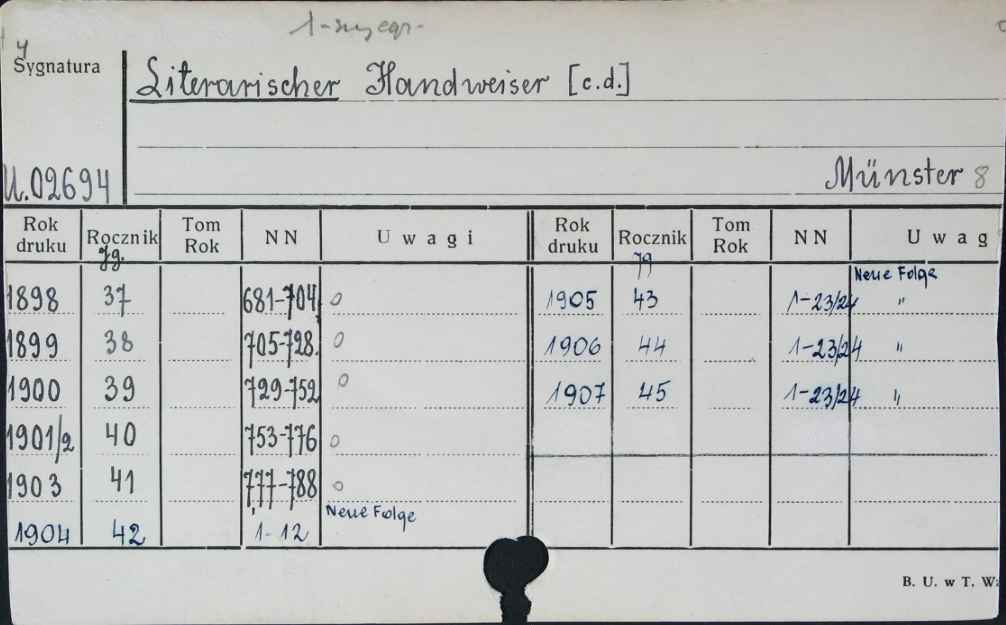 Sygnatura
Literarischer Handweiser [c.d.]
U.02694
Münster 8
Rok druku Rocznik Tom Rok NN Uwagi Rok druku Rocznik Tom Rok NN Uwag
Jg. Jg
Neue Folge
1898 37 681-704 0 1905 43 1-23/24 "
1899 38 705-728. 0 1906 44 1-23/24 "
1900 39 729-752 0 1907 45 1-23/24 "
1901/2 40 753-776 0
1903 41 777-788 0
Neue Folge
1904 42 1-12
B. U. w T. W: